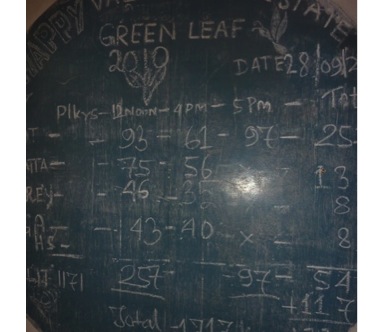 HAPPY VA ESTATE
GREEN LEAF
2019
DATE 28/09/2
Plkys - 12 Noon - 4 PM - 5 PM - Tot
T - - 93 - 61 - 97 - 25
TTA - - 75 - 56 13
REY - - 46 - 35 8
HS - - 43 - 40 - x - 8
LIT 1171 257 - 97 - 54
+ 117
Total